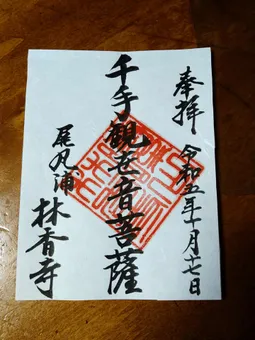 奉拝
令和五年十月十七日
千手観世音菩薩
尾丸浦
林香寺